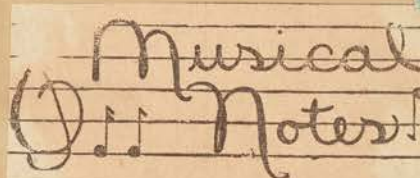 Musical
Notes!